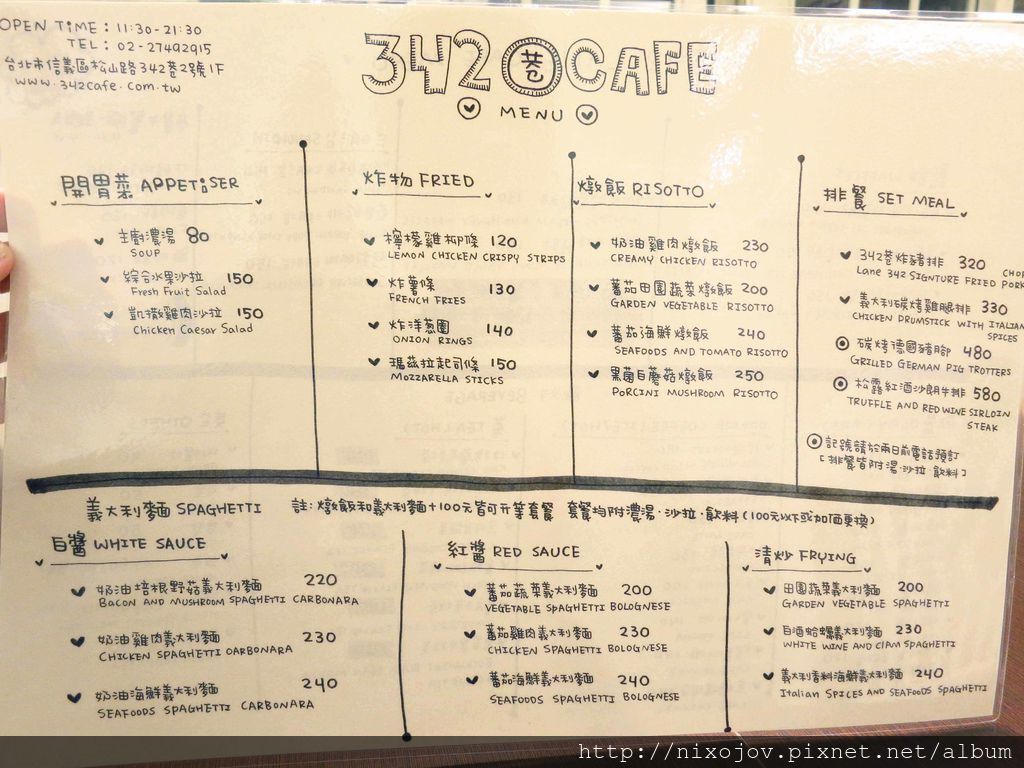 OPEN TIME : 11:30-21:30
TEL : 02-27492915
台北市信義區松山路342巷2號1F
www.342cafe.com.tw
342巷CAFE
MENU
開胃菜 APPETiSER
主廚濃湯 80
SOUP
綜合水果沙拉 150
Fresh Fruit Salad
凱撒雞肉沙拉 150
Chicken Caesar Salad
炸物 FRIED
檸檬雞柳條 120
LEMON CHICKEN CRISPY STRIPS
炸薯條 130
FRENCH FRIES
炸洋蔥圈 140
ONION RINGS
瑪茲拉起司條 150
MOZZARELLA STICKS
燉飯 RISOTTO
奶油雞肉燉飯 230
CREAMY CHICKEN RISOTTO
蕃茄田園蔬菜燉飯 200
GARDEN VEGETABLE RISOTTO
蕃茄海鮮燉飯 240
SEAFOODS AND TOMATO RISOTTO
黑菌白蘑菇燉飯 250
PORCINI MUSHROOM RISOTTO
排餐 SET MEAL
342巷炸豬排 320
CHOP
Lane 342 SIGNTURE FRIED PORK
義大利碳烤雞腿排 330
CHICKEN DRUMSTICK WITH ITALIAN
SPICES
碳烤德國豬腳 480
GRILLED GERMAN PIG TROTTERS
松露紅酒沙朗牛排 580
TRUFFLE AND RED WINE SIRLOIN
STEAK
記號請於兩日前電話預訂
[排餐皆附湯.沙拉.飲料]
義大利麵 SPAGHETTI 註:燉飯和義大利麵+100元皆可升等套餐 套餐均附濃湯.沙拉.飲料(100元以下或加價更換)
白醬 WHITE SAUCE
奶油培根野菇義大利麵 220
BACON AND MUSHROOM SPAGHETTI CARBONARA
奶油雞肉義大利麵 230
CHICKEN SPAGHETTI OARBONARA
奶油海鮮義大利麵 240
SEAFOODS SPAGHETTI CARBONARA
紅醬 RED SAUCE
蕃茄蔬菜義大利麵 200
VEGETABLE SPAGHETTI BOLOGNESE
蕃茄雞肉義大利麵 230
CHICKEN SPAGHETTI BOLOGNESE
蕃茄海鮮義大利麵 240
SEAFOODS SPAGHETTI BOLOGNESE
清炒 FRYING
田園蔬菜義大利麵 200
GARDEN VEGETABLE SPAGHETTI
白酒蛤蠣義大利麵 230
WHITE WINE AND CIAM SPAGHETTI
義大利香料海鮮義大利麵 240
Italian SPICES AND SEAFOODS SPAGHETTI
http://nixojov.pixnet.net/album